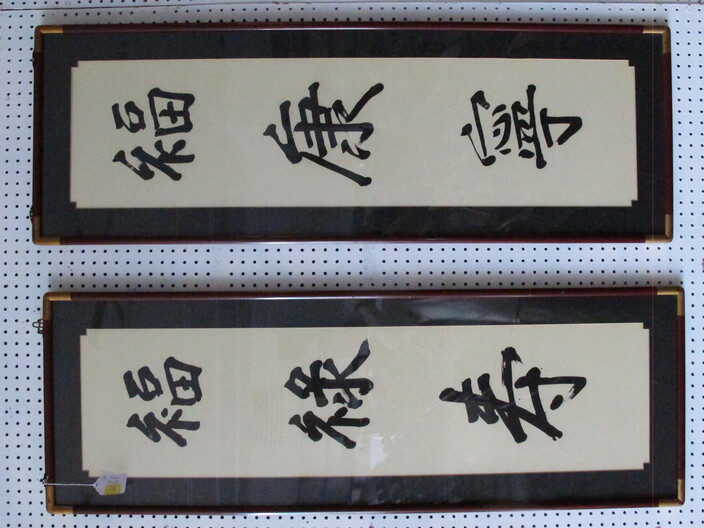 福康寧
福祿寿